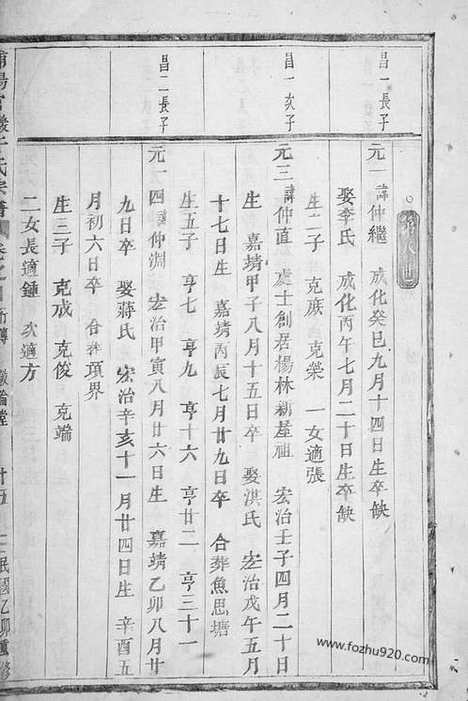 昌一長子
昌一次子
昌二長子
元一諱仲繼 成化癸巳九月十四日生卒缺
娶李氏 成化丙午七月二十日生卒缺
生二子 克族 克榮 一女適張
元三諱仲直 處士創居楊林新屋祖 宏治壬子四月二十日
生 嘉靖甲子八月十五日卒 娶洪氏 宏治戊午五月
十七日生 嘉靖丙辰七月廿九日卒 合葬魚思塘
生五子 亨七 亨九 亨十六 亨廿二 亨三十一
元一四諱仲淵 宏治甲寅八月廿六日生 嘉靖乙卯八月廿
九日卒 娶蔣氏 宏治辛亥十一月廿四日生 辛酉五
月初六日卒 合葬項界
生三子 克戒 克俊 克端
二女長適鍾 次適方
氏宗譜 廿五 民國乙卯重修
www.fozhu920.com